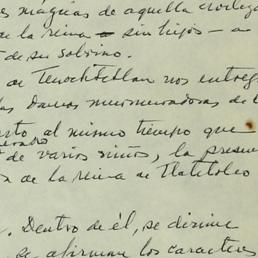 es máquias de aquella
de la reina - sin hijos - a
de su sobrino.
de Tenochtitlan nos entreg
las damas murmuradoras de l
to al mismo tiempo que
de varios niños, la prese
de la reina de Tlatelolco
. Dentro de él, se dirime
se afirman los caracteres